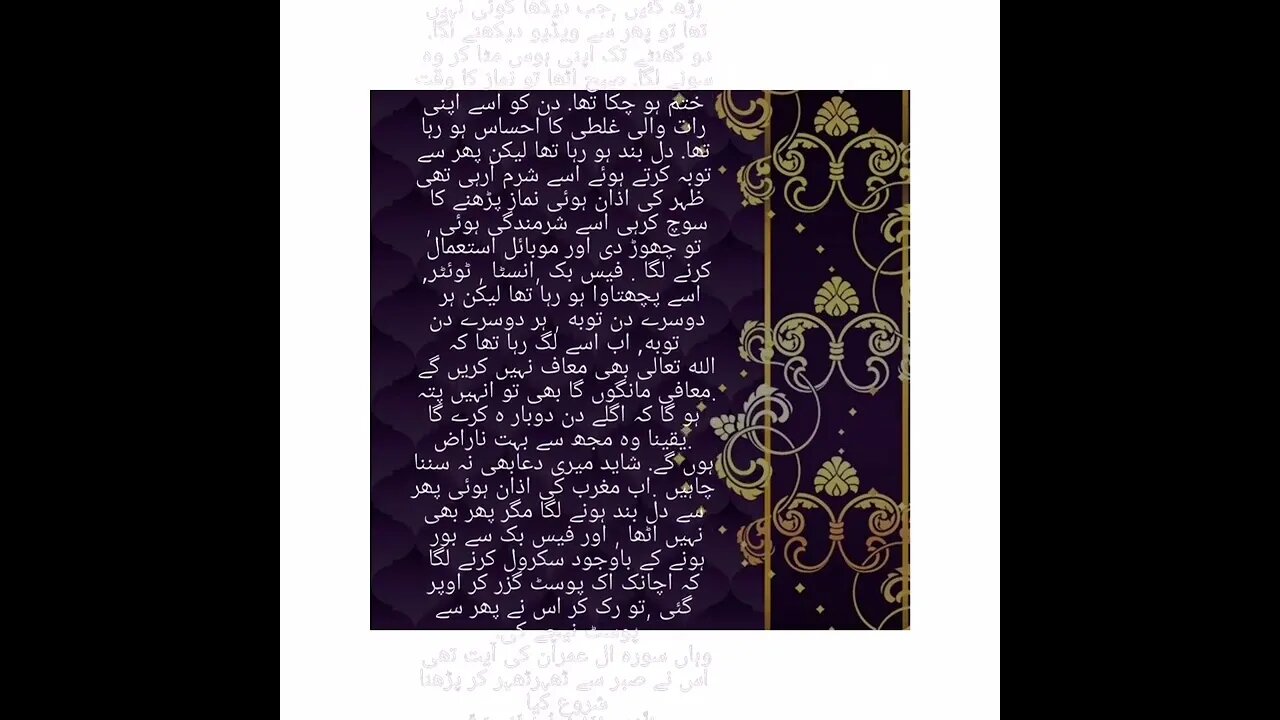 بڑھ گئیں ,جب دیکھا کوئی نہیں
تھا تو پھر سے ویڈیو دیکھنے لگا.
دو گھنٹے تک اپنی ہوس مٹا کر وہ
سونے لگا. صبح اٹھا تو نماز کا وقت
ختم ہو چکا تھا. دن کو اسے اپنی
رات والی غلطی کا احساس ہو رہا
تھا. دل بند ہو رہا تھا لیکن پھر سے
توبہ کرتے ہوئے اسے شرم آرہی تھی
ظہر کی اذان ہوئی نماز پڑھنے کا
سوچ کرہی اسے شرمندگی ہوئی ,
تو چھوڑ دی اور موبائل استعمال
کرنے لگا . فیس بک ,انسٹا , ٹوئٹر,
اسے پچھتاوا ہو رہا تھا لیکن ہر
دوسرے دن توبہ , ہر دوسرے دن
توبہ, اب اسے لگ رہا تھا کہ
اللہ تعالی بھی معاف نہیں کریں گے
.معافی مانگوں گا بھی تو انہیں پتہ
ہو گا کہ اگلے دن دوبار ہ کرے گا
.یقینا وہ مجھ سے بہت ناراض
ہوں گے. شاید میری دعابھی نہ سننا
چاہیں .اب مغرب کی اذان ہوئی پھر
سے دل بند ہونے لگا مگر پھر بھی
نہیں اٹھا , اور فیس بک سے بور
ہونے کے باوجود سکرول کرنے لگا
کہ اچانک اک پوسٹ گزر کر اوپر
گئی ,تو رک کر اس نے پھر سے
پوسٹ نیچے کی.
وہاں سورہ ال عمران کی آیت تھی
اس نے صبر سے ٹھہرٹھہر کر پڑھنا
شروع کیا